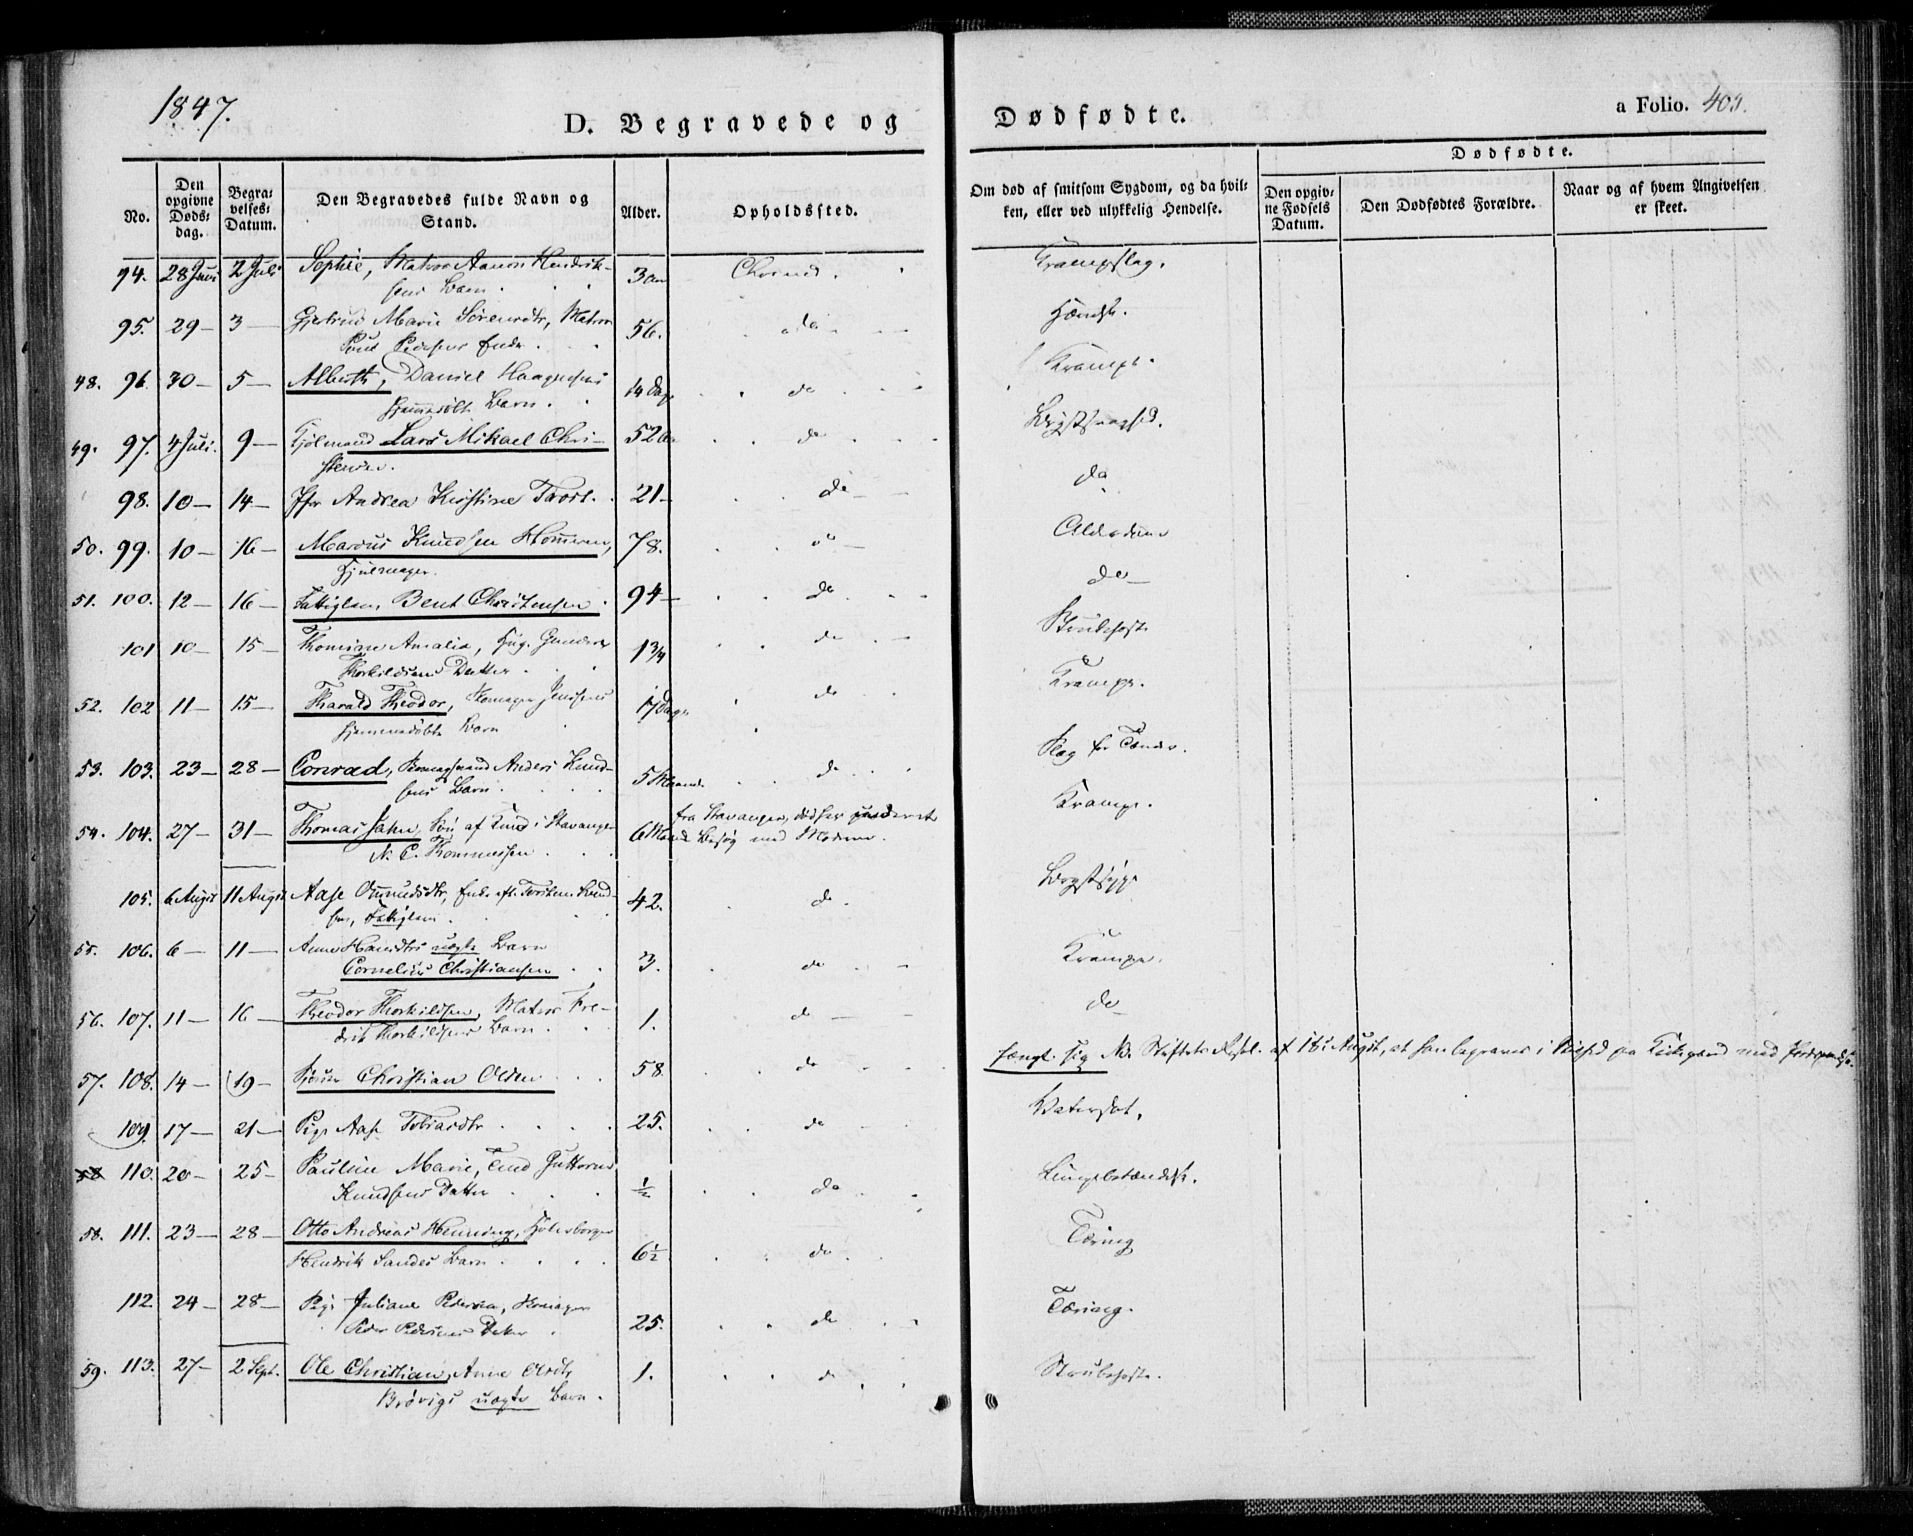 1847.
D. Begravede og Dødfødte.
a Folio. 403.
No.
Den opgivne Døds-dag.
Begra-velses-Datum.
Den Begravedes fulde Navn og Stand.
Alder.
Opholdssted.
Om død af smitsom Sygdom, og da hvil-ken, eller ved ulykkelig Hendelse.
Dødfødte.
Den opgiv-ne Fødsels Datum.
Den Dødfødtes Forældre.
Naar og af hvem Angivelsen er skeet.
94. 28 Juni 2 Juli Sophie, Matros Aanon Hendrik-
sens Barn. 3 Chrsand. Krampslag.
95. 29 — 3 — Marie Sørensdtr, Matros
Pedersens Enke. 56. do
48. 96. 30 — 5 — Daniel Haagensens
hjemmedøbt Barn. 14 Dage do Krampe.
49. 97. 4 Juli. 9 — Lars Mikael Chri-
stensen. 52 do
98. 10 — 14 — Jfr Andrea Kirstine 21 — do — do
50. 99. 10 — 16 — Marcus Knudsen
Hjulmager. 78. do — Alderdom
51. 100. 12 — 16 — Fattiglem, Bent Christensen. 94 — do do —
101 10 — 15 — Thomine Amalia,
Thorkildsens Datter. 1 3/4 do Strubehoste
52. 102 11 — 15 — Harald Theodor, Skomager Jensens
hjemmedøbte Barn 17 Dage do Krampe.
53. 103. 23 — 28 — Conrad, Anders Knud-
sens Barn. 5 Maaned do Slag for Tænder.
54. 104. 27 — 31 — Thomas Jahn, Søn af i Stavanger
N. C. Thomassen 6 Maand fra Stavanger, død her
Besøg med Moderen. Krampe.
105. 6 August 11 August Aase Enke eft. Torsten Knud-
sen, Fattiglem. 42. do. Brystsyge
55. 106. 6 — 11 — Anne uægte Barn
Cornelius Christiansen 3. do — Krampe.
56. 107. 11 — 16 — Theodor Thorkildsen, Matros Fre-
drik Thorkildsens Barn. 1. do — do —
57. 108. 14 — 19 — Christian Olsen 58. do hængt sig NB. Stiftets Resol. af 18 August, at han begraves i Stilhed paa Kirkegaard med
109. 17 — 21 — Pige Aase Tobiasdtr 25. do — Vatersot.
58 110. 20 — 25 — Pauline Marie, Guttorm
Knudsens Datter 1/2 do. Lungebetændelse.
58. 111. 23 — 28 — Otto Andreas Henning,
Hendrik Sandes Barn 6 1/2 do Tæring
112 24 — 28 — Pige Juliane Pedersen, Skomager
Peder Pedersens Datter 25. do Tæring.
59. 113. 27 — 2 Sept. Ole Christian, Anne Olsdtr
Brøvigs uægte Barn. 1. do Strubehoste.